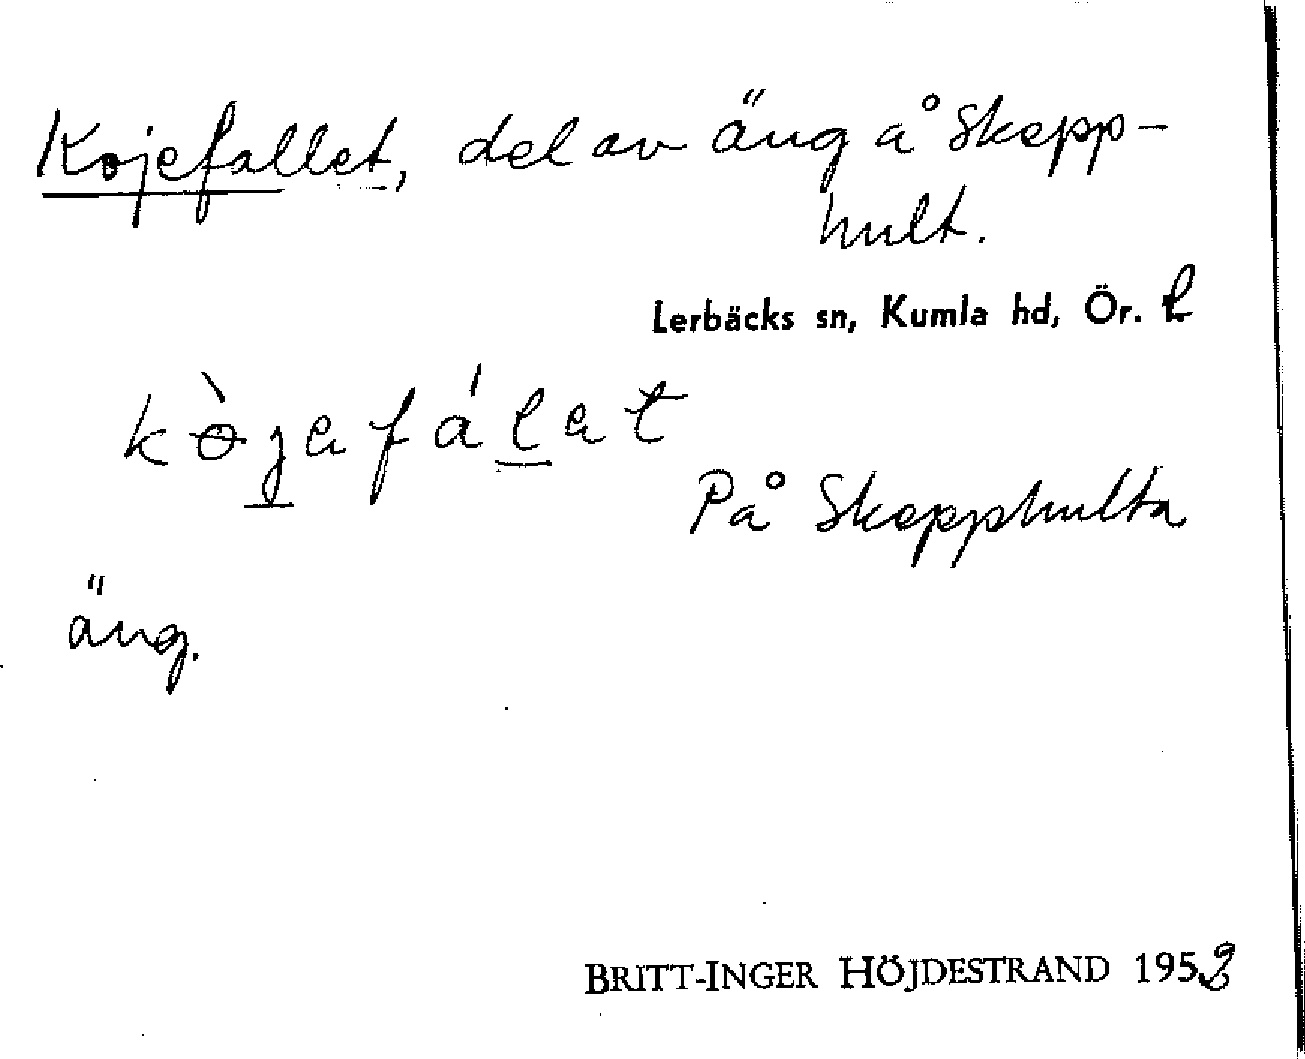 Kojefallet, del av äng å Skepp-
hult.
Lerbäcks sn, Kumla hd, Ör. l
kɵ̀jefáletet
På Skepphulta
äng.
BRITT-INGER HÖJDESTRAND 1953